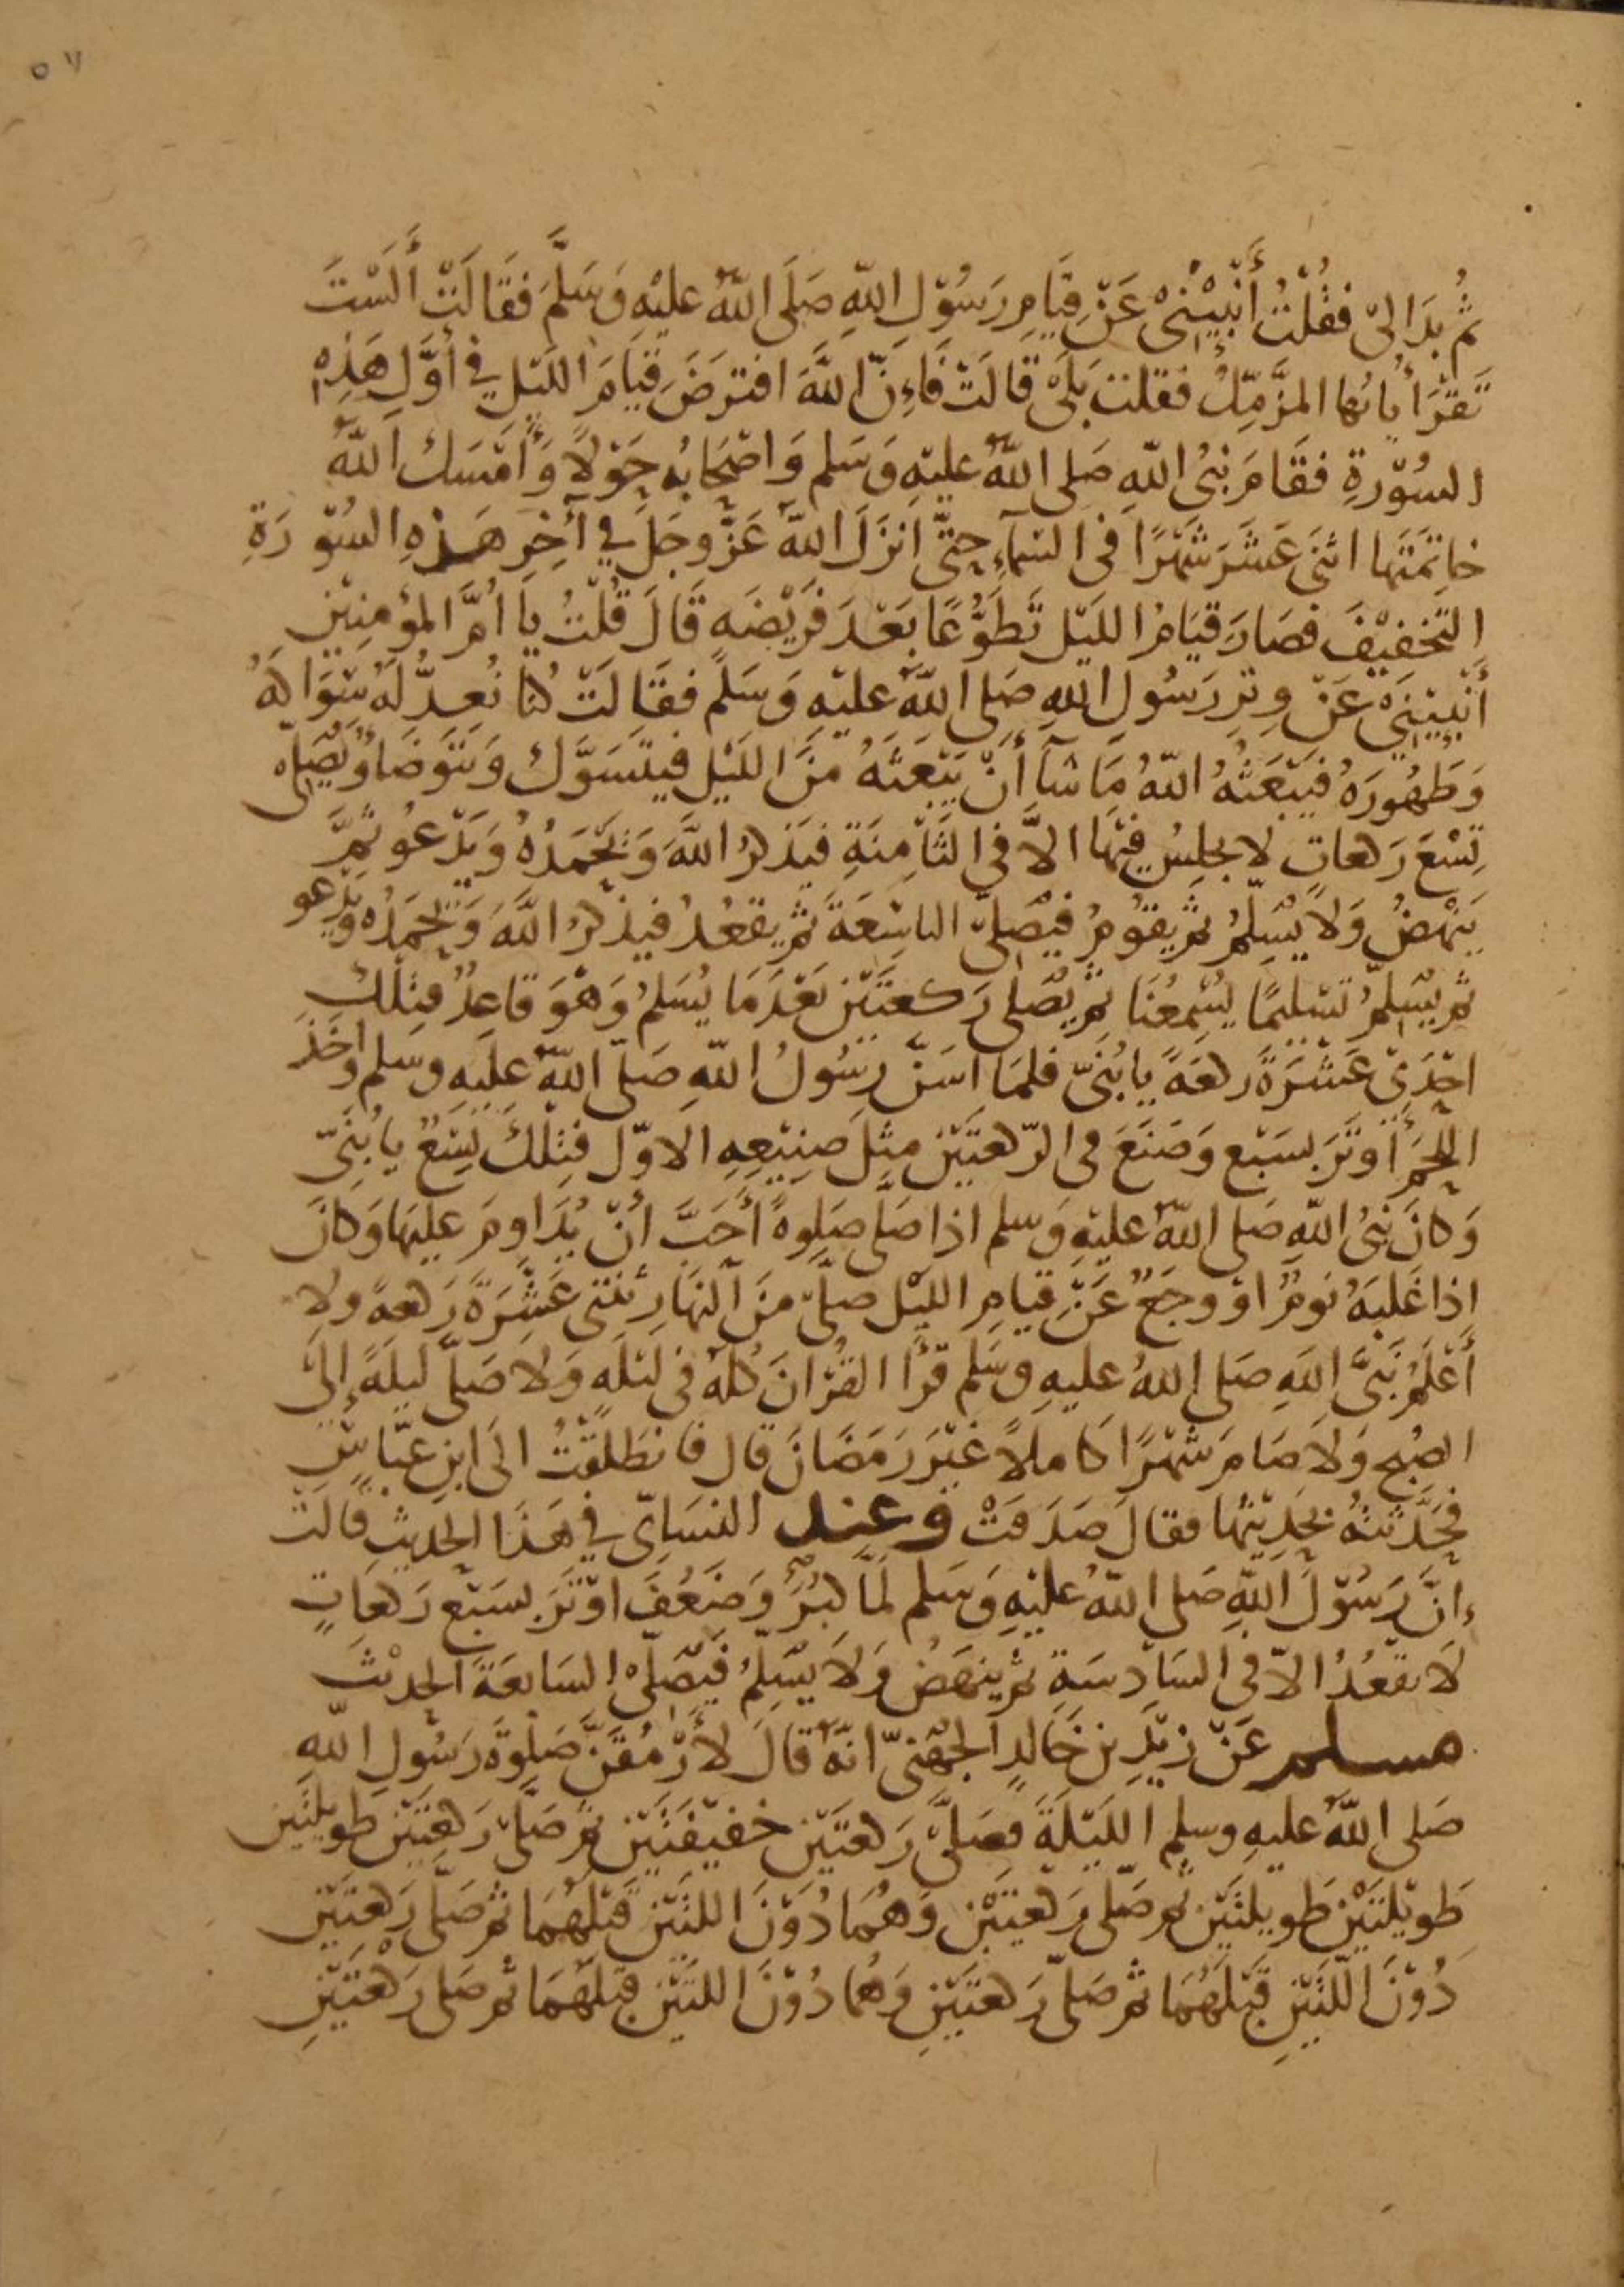 ٥٧
ثُمَّ بَدَا لِيْ فَقُلْتُ أَنْبِئِيْنِيْ عَنْ قِيَامِ رَسُوْلِ اللّٰهِ صَلَى اللّٰهُ عَلَيْهِ وَسَلَّمَ فَقَالَتْ أَلَسْتَ
تَقْرَأُ يَا يُّهَا المزَّمِّلُ فَقُلْتُ بَلَىْ قَالَتْ فَاِنَّ اللّٰهَ افْتَرَضَ قِيَامَ اللَّيْلِ فِي أَوَّلِ هَذِهِ
السُّوْرَةِ فَقَامَ نَبِيُّ اللّٰهِ صَلى اللّٰهُ عليْهِ وَسَلم وَاصْحَابُهِ حَوْلًا وَأَمْسَكَ اللّٰهُ
خاتِمَتَهَا اثْنَى عَشَرَ شَهْرًا فى السَّمآءِ حَتَّى أَنْزَلَ اللّٰهُ عَزَّ وجَلَّ فِي آخِرِ هَذِهِ السُّوْرَةِ
التَّخفِيْفَ فصَارَ قيَامُ الليْلِ تَطَوُّعًا بَعْدَ فَرِيْضَه قَالَ قُلْتُ يا أُمَّ المُؤمِنِيْنَ
أَنْبِئِيْنِيْ عَنْ وِتْرِ رَسُولِ اللهِ صَلى اللّٰهُ عليْهِ وَسَلم فقَالَتْ كُنَّا نُعِدُّ لَهُ سِوَاكَهُ
وَطَهُورَهُ فيَبْعَثُهُ اللّٰهُ مَا شَآ أَنْ يَبْعَثَهُ مِنَ الليْلِ فيتَسَوَّكُ وَيَتَوَضَأُ وَيُصَلِّى
تِسْعَ رَكعاتٍ لا يجلِسُ فيْهَا الاَّ فى الثَّامِنَةِ فيَذْكرُ اللَّهَ وَيَحْمَدُهُ وَيَدْعُو ثمَّ
يَنْهَضُ وَلَا يُسَلِّمُ ثم يقوْمُ فيُصَلِّيْ التاسِعَةَ ثم يقعُدُ فيذكرُ اللَّهَ وَيَحْمَدُهُ وَيَدْعو
ثم يُسَلِّمُ تسْليمًا يُسْمِعُنَا ثم يُصَلى رَكعتَيْنِ بَعْدَ مَا يُسَلمُ وَهْوَ قاعِدٌ فتِلْكَ
احْدَىْ عَشْرَةَ رَكعَةً يا بُنَيّ فلمّا اسَنَّ رَسُولُ اللّٰهِ صَلّى اللّٰهُ عليهِ وسلم وأخَذَ
اللحْمَ أَوْتَرَ بسَبْع وَصَنَعَ فى الرّكعتَيْنِ مِثْلَ صَنِيْعِهِ الاوّل فتِلْكَ تِسْعٌ يا بُنَيّ
وَكانَ نَبِىُّ اللّٰهِ صَلى اللّٰهُ عليْهِ وَسلم اذا صَلى صَلوةً أَحَبَّ أَنْ يُدَاومَ عليهَا وَكانَ
اِذا غَلبَهُ نَوْمٌ اوْ وجَعٌ عَنْ قِيامِ الليْل صلّى مِنَ النهَارِ ثِنْتى عَشَرَةَ رَكعةً ولا
أَعْلمُ نَبىَّ اللهِ صَلى اللهُ عليهِ وسَلم قرَأَ القُرْانَ كُلهُ فى ليْلَهٍ وَلا صَلّى ليلَةً إِلىَ
الصُبْحِ وَلَا صَامَ شَهْرًا كاملاً غيْرَ رَمَضَانَ قال فانطَلقْتُ الَى ابنِ عبّاسٍ
فحَدَّثتُهُ بحَدِيْثِهَا فقالَ صَدَقَتْ وعند النسَايّ فِي هَذا الحَديثِ قالتْ
اِنَّ رَسُوْلَ اللّٰهِ صَلى اللّٰهُ عليْهِ وَسَلم لمَّا كبُرَ وَضَعُفَ اوْتَرَ بسَبْع رَكعَاتٍ
لَا يقعُدُ الاّ فى السَادِسَةِ ثم ينهَضُ وَلَا يُسَلِّمُ فيُصَلّى السَّابعَةَ الحَدِيْثَ
مسلم عَنْ زيْدِ بن خَالدٍ الجُهَنِىّ انّهُ قَالَ لأَرْمُقَنَّ صَلوةَ رَسُولِ اللّٰهِ
صَلى اللّٰهُ عليهِ وسلم الليْلَةَ فصَلّى رَكعتَيْنِ خَفيْفَتَيْنِ ثم صَلّى رَكعتَيْنِ طويلتَيْنِ
طَويْلتَيْنِ طَويلتَيْنِ ثم صَلّى رَكعتَيْنِ وَهُمَا دُوْنَ اللتَيْنِ قَبْلَهُمَا ثم صَلَّى رَكعتَيْنِ
دُوْنَ اللّتَيْنِ قَبْلَهُمَا ثم صَلّى رَكعتَيْنِ وَهُمَا دُوْنَ اللتَيْنِ قبْلَهُمَا ثم صَلى رَكعَتَيْنِ